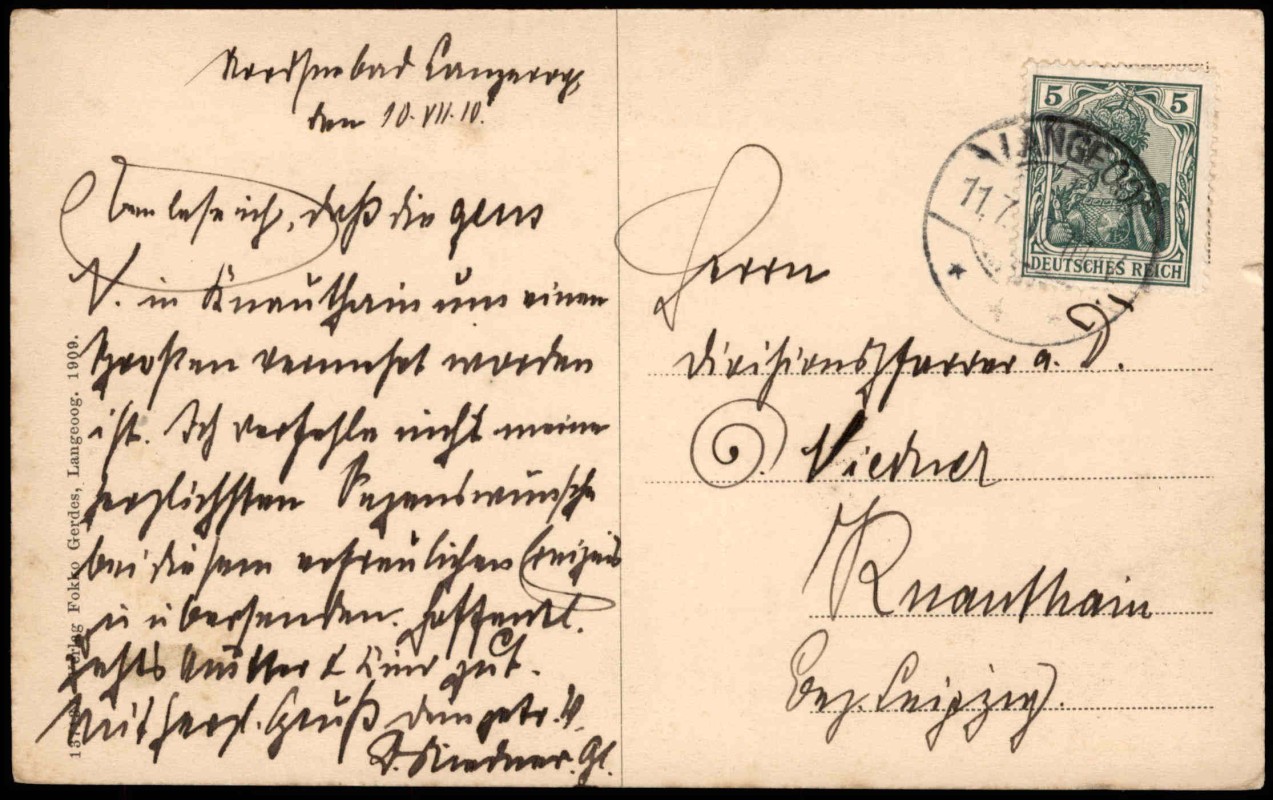 Nordseebad Langeoog,
den 10.VII.10.
Eben lese ich, daß die gens
N. in Knauthain um einen
Großen vermehrt worden
ist. Ich verfehle nicht meine
herzlichsten Segenswünsche
bei diesem erfreulichen Ereignis
zu übersenden. Hoffentl.
gehts Mutter & Kind gut.
Mit herzl. Gruß Dein getr. V.
Niedner. Gl.
Verlag Fokko Gerdes, Langeoog. 1909.
5 5
DEUTSCHES REICH
LANGEOOG
11.7.
Herrn
Divisionspfarrer a. D.
G. Niedner
Knauthain
Bez. Leipzig.